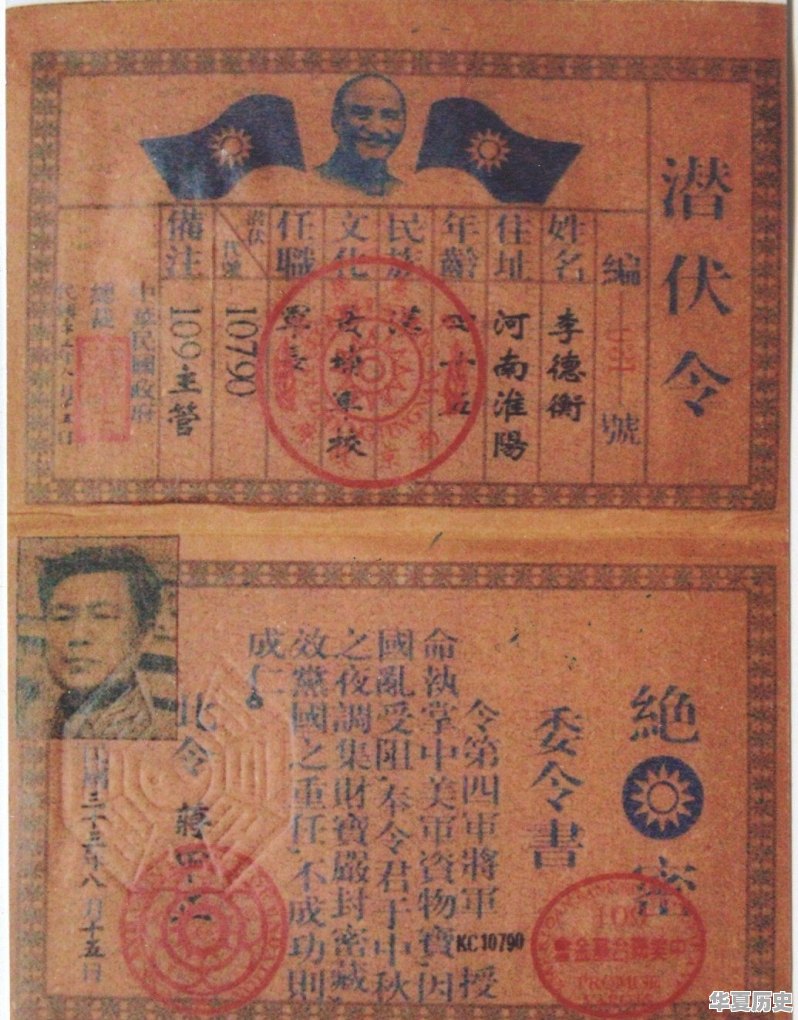 潜伏令
編
號
姓名 李德衡
住址 河南淮陽
年齡 四十五
民族 漢
文化 軍校
任職 軍長
潛伏代號 10790
備注 109主管
中華民國政府
總裁
絕密
委令書
令第四軍將軍授
命执掌中美軍資物寶因
國亂受阻奉令君于中秋
之夜調集財寶嚴封密藏
效黨國之重任不成功則
成仁
KC10790
此令 蔣中正
民國三十五年八月十五日
中美開台基金會
华夏历史